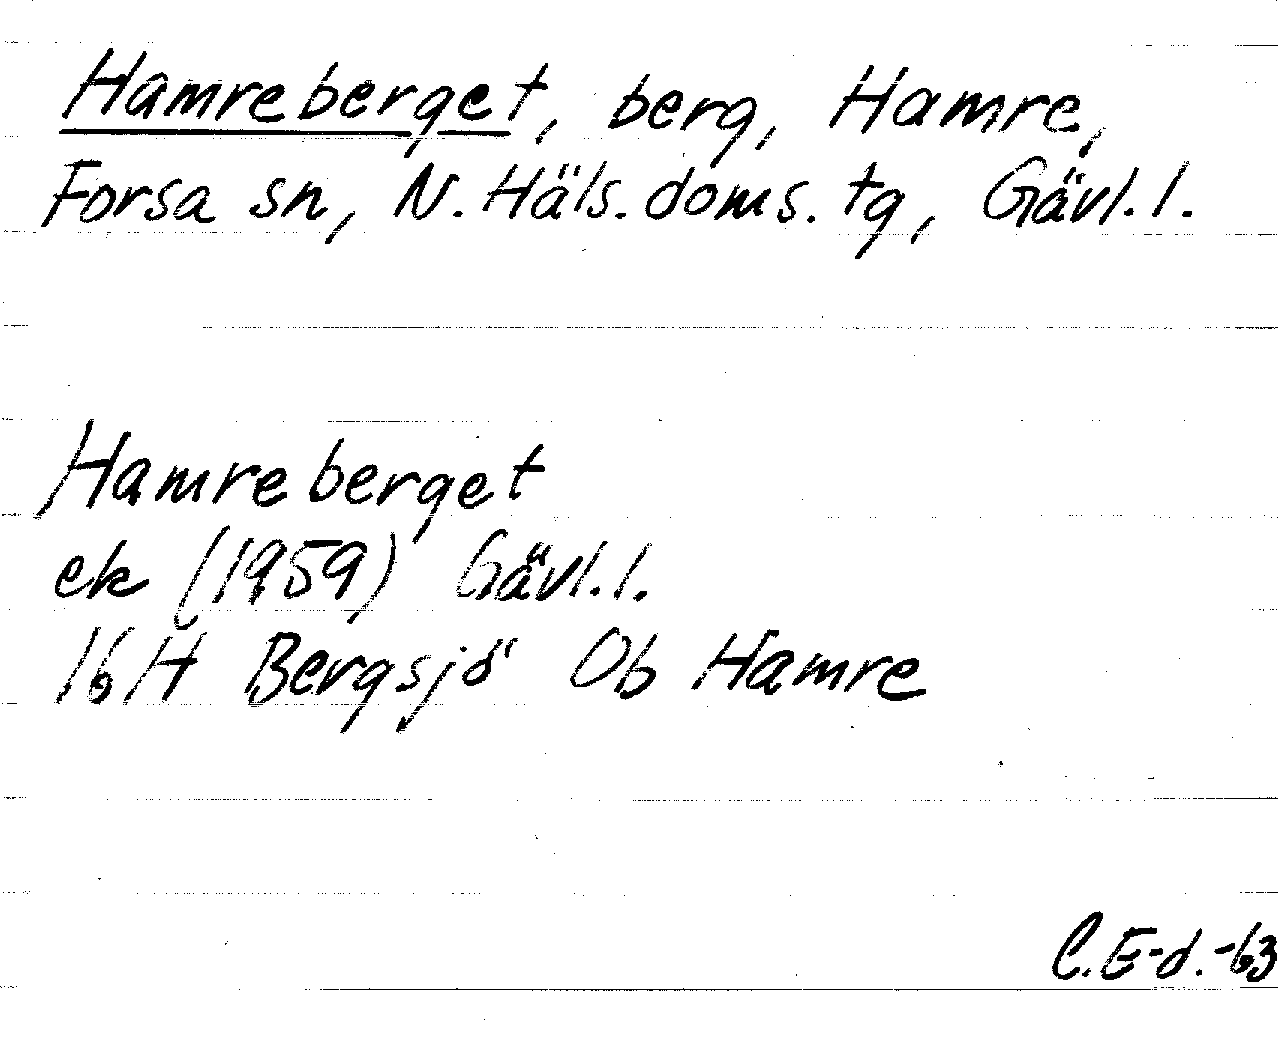 Hamreberget, berg, Hamre,
Forsa sn, N. Häls. doms. tg, Gävl. l.
Hamreberget
ek (1959) Gävl. l.
16H Bergsjö Ob Hamre
C. E-d. -63